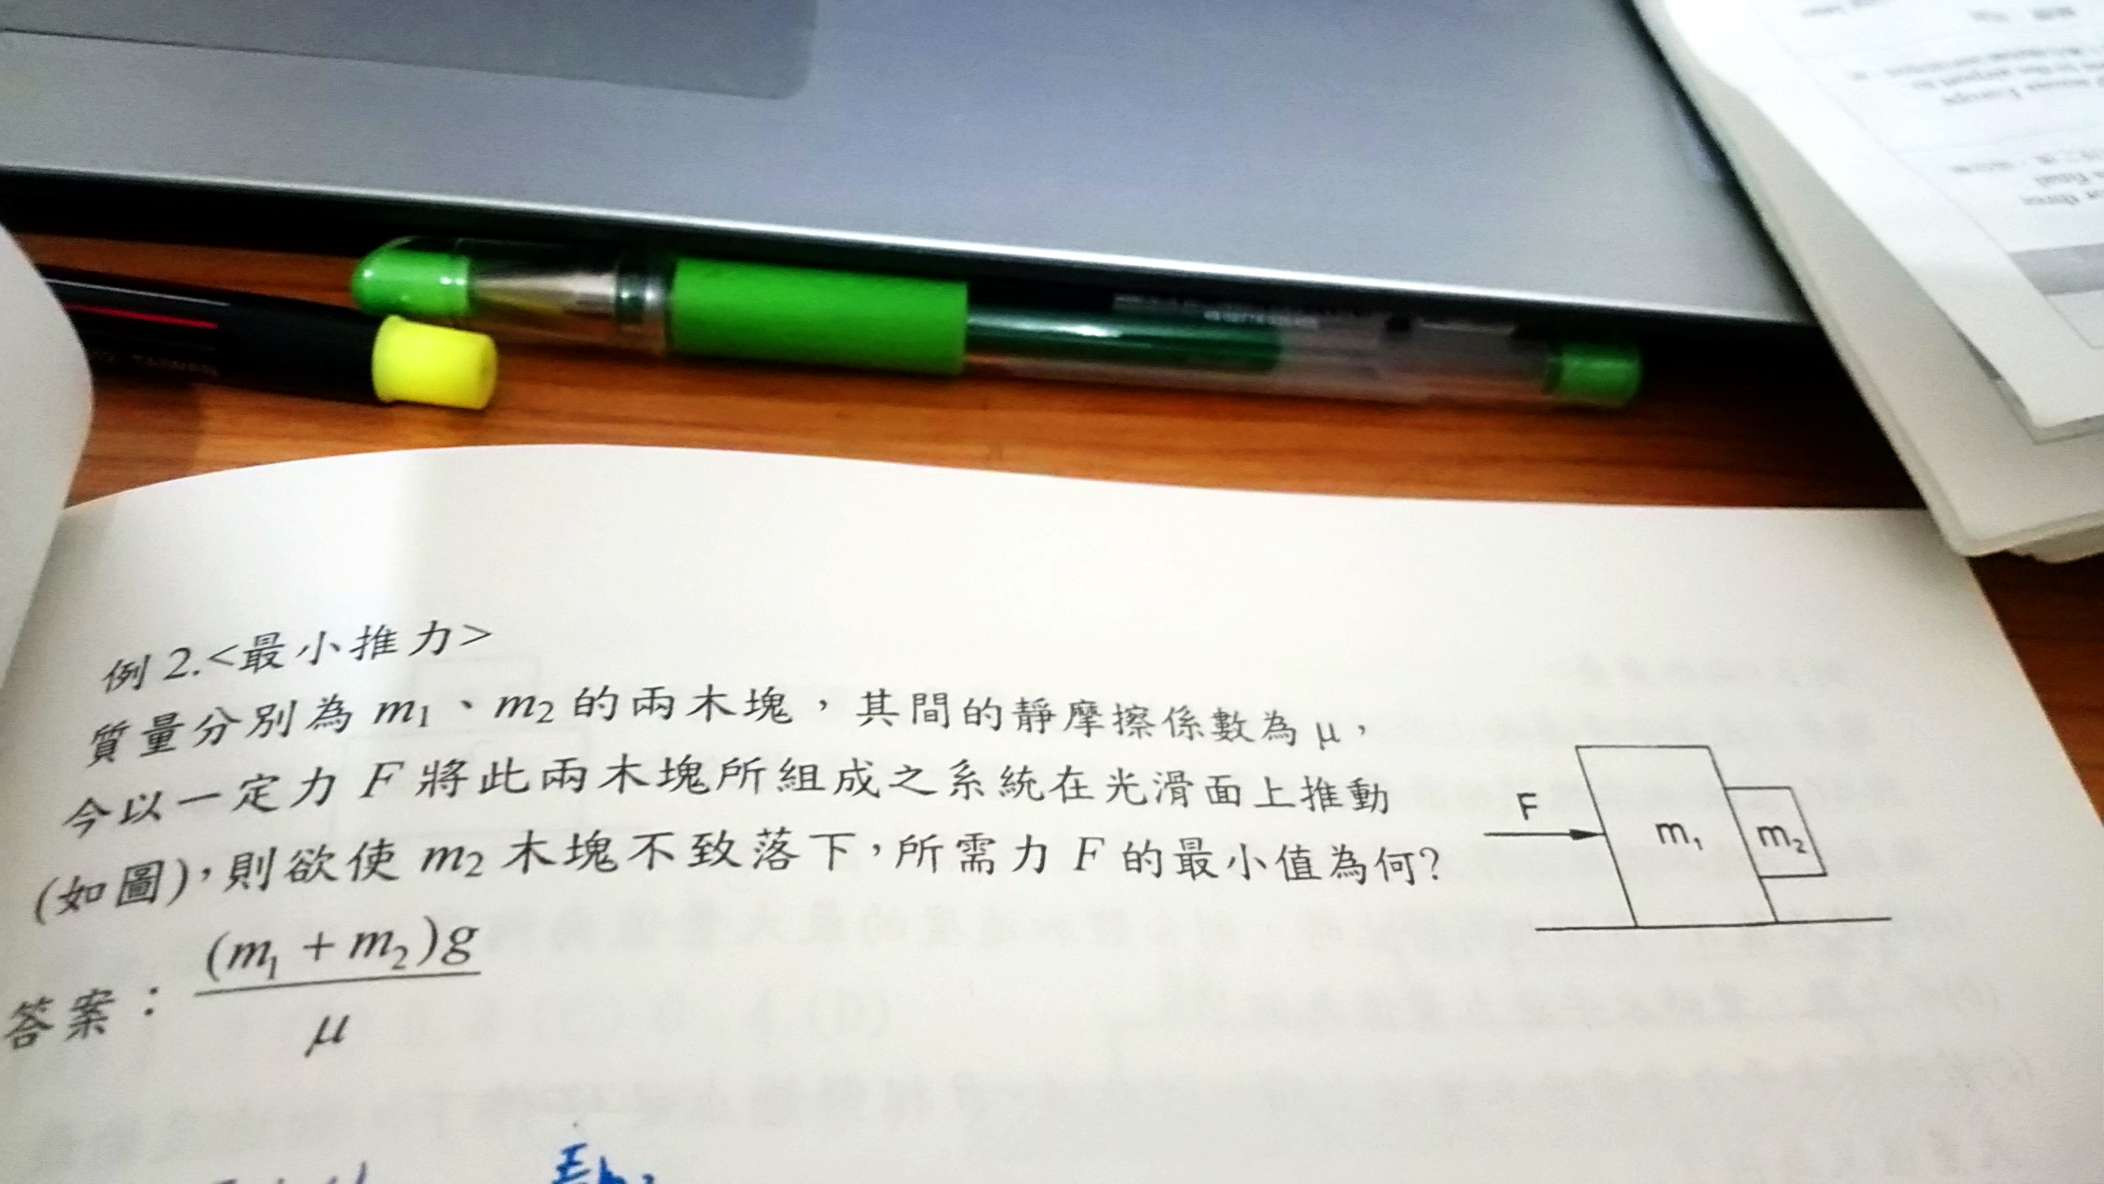 TAIWAN
例 2.<最小推力>
質量分別為 m₁、m₂ 的兩木塊，其間的靜摩擦係數為 μ，
今以一定力 F 將此兩木塊所組成之系統在光滑面上推動
(如圖)，則欲使 m₂ 木塊不致落下，所需力 F 的最小值為何?
F
m₁
m₂
答案：(m₁ + m₂)g / μ